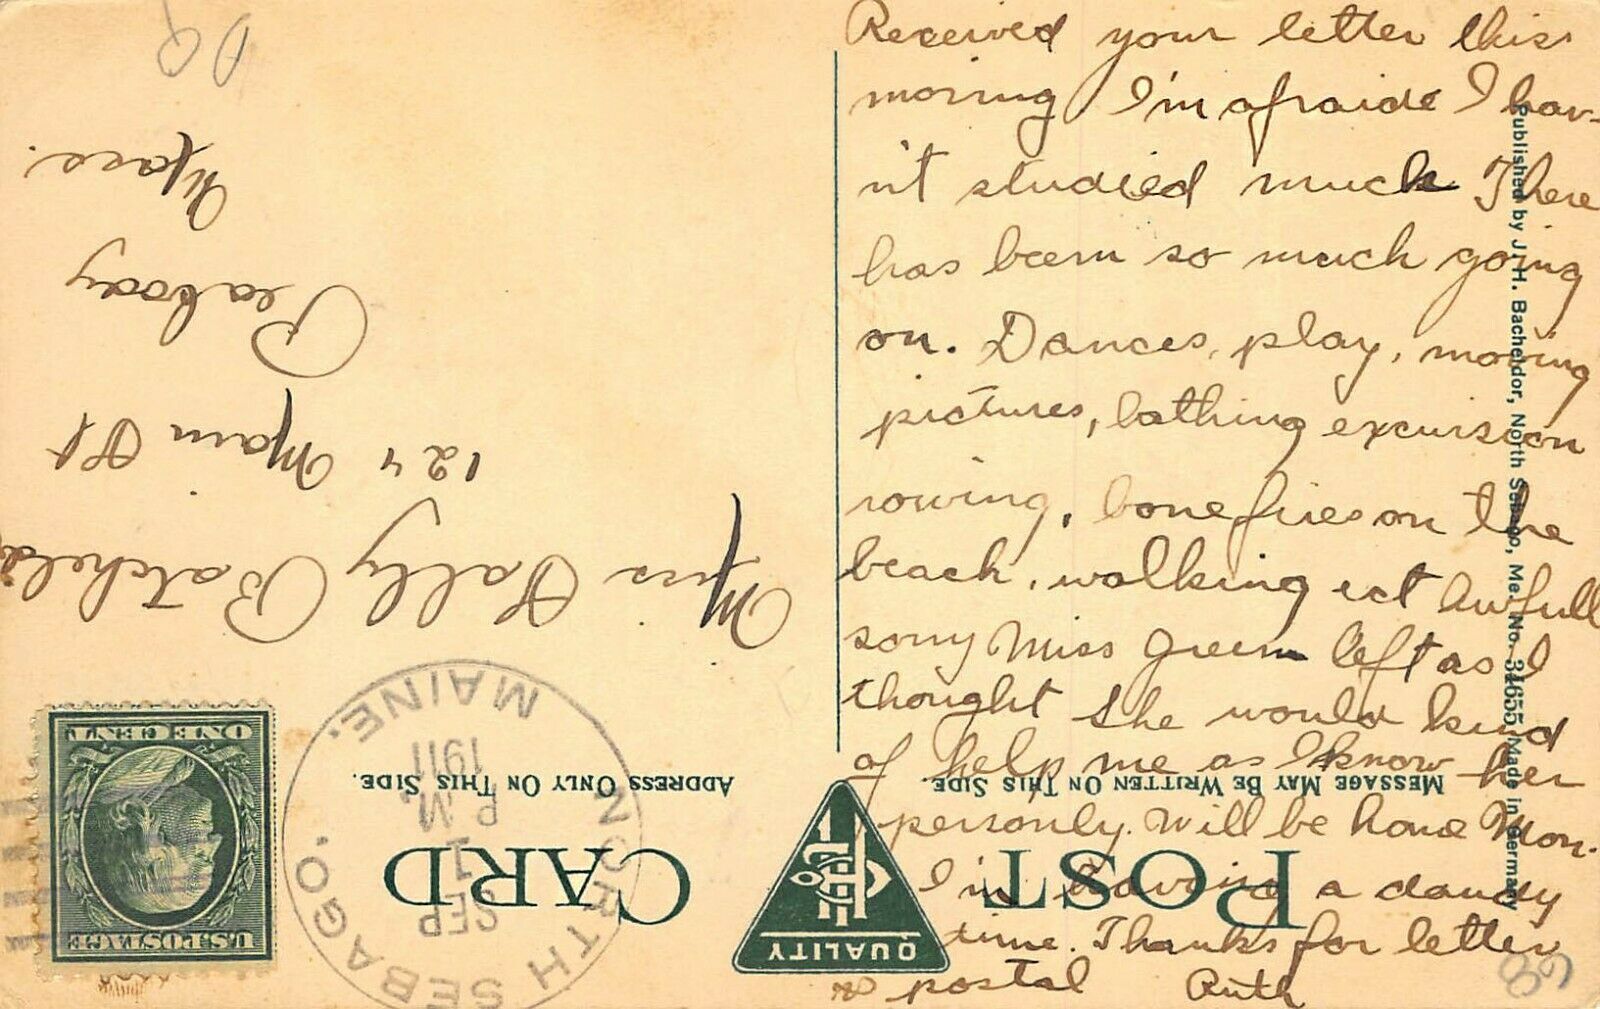 Received your letter this
morning I'm afraide I hav-
n't studied much There
has been so much going
on. Dances, play, moving
pictures, bathing excursion
rowing, bonefires on the
beach, walking ect Awfull
sorry Miss Green left as I
thought she would kind
of help me as I know her
personly. Will be home Mon.
I'm having a dandy
time. Thanks for letter
& postal Ruth
Published by J. H. Bacheldor, North Sebago, Me. No. 31655 Made in Germany
POST CARD
QUALITY
MESSAGE MAY BE WRITTEN ON THIS SIDE.
ADDRESS ONLY ON THIS SIDE.
NORTH SEBAGO. MAINE.
SEP
1
P.M.
1911
U.S. POSTAGE
ONE CENT
Miss Sally Batcheld
124 Main St
Peabody
Mass.